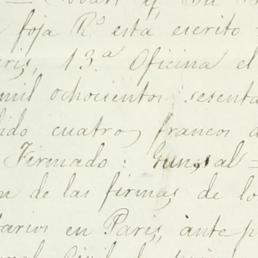 foja Rº está escrito
13.ª Oficina el
mil ochocientos sesenta
cuatro francos
Firmado:
de las firmas de lo
tarios en París, ante